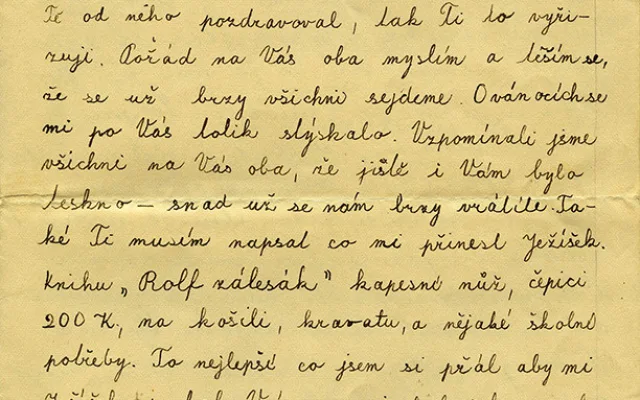 Tě od něho pozdravoval, tak Ti to vyři-
zuji. Pořád na Vás oba myslím a těším se,
že se už brzy všichni sejdeme. O vánocích se
mi po Vás tolik stýskalo. Vzpomínali jsme
všichni na Vás oba, že jistě i Vám bylo
teskno – snad už se nám brzy vrátíte. Ta-
ké Ti musím napsat co mi přinesl Ježíšek.
Knihu „Rolf zálesák" kapesní nůž, čepici
200 K, na košili, kravatu, a nějaké školní
potřeby. To nejlepší co jsem si přál aby mi